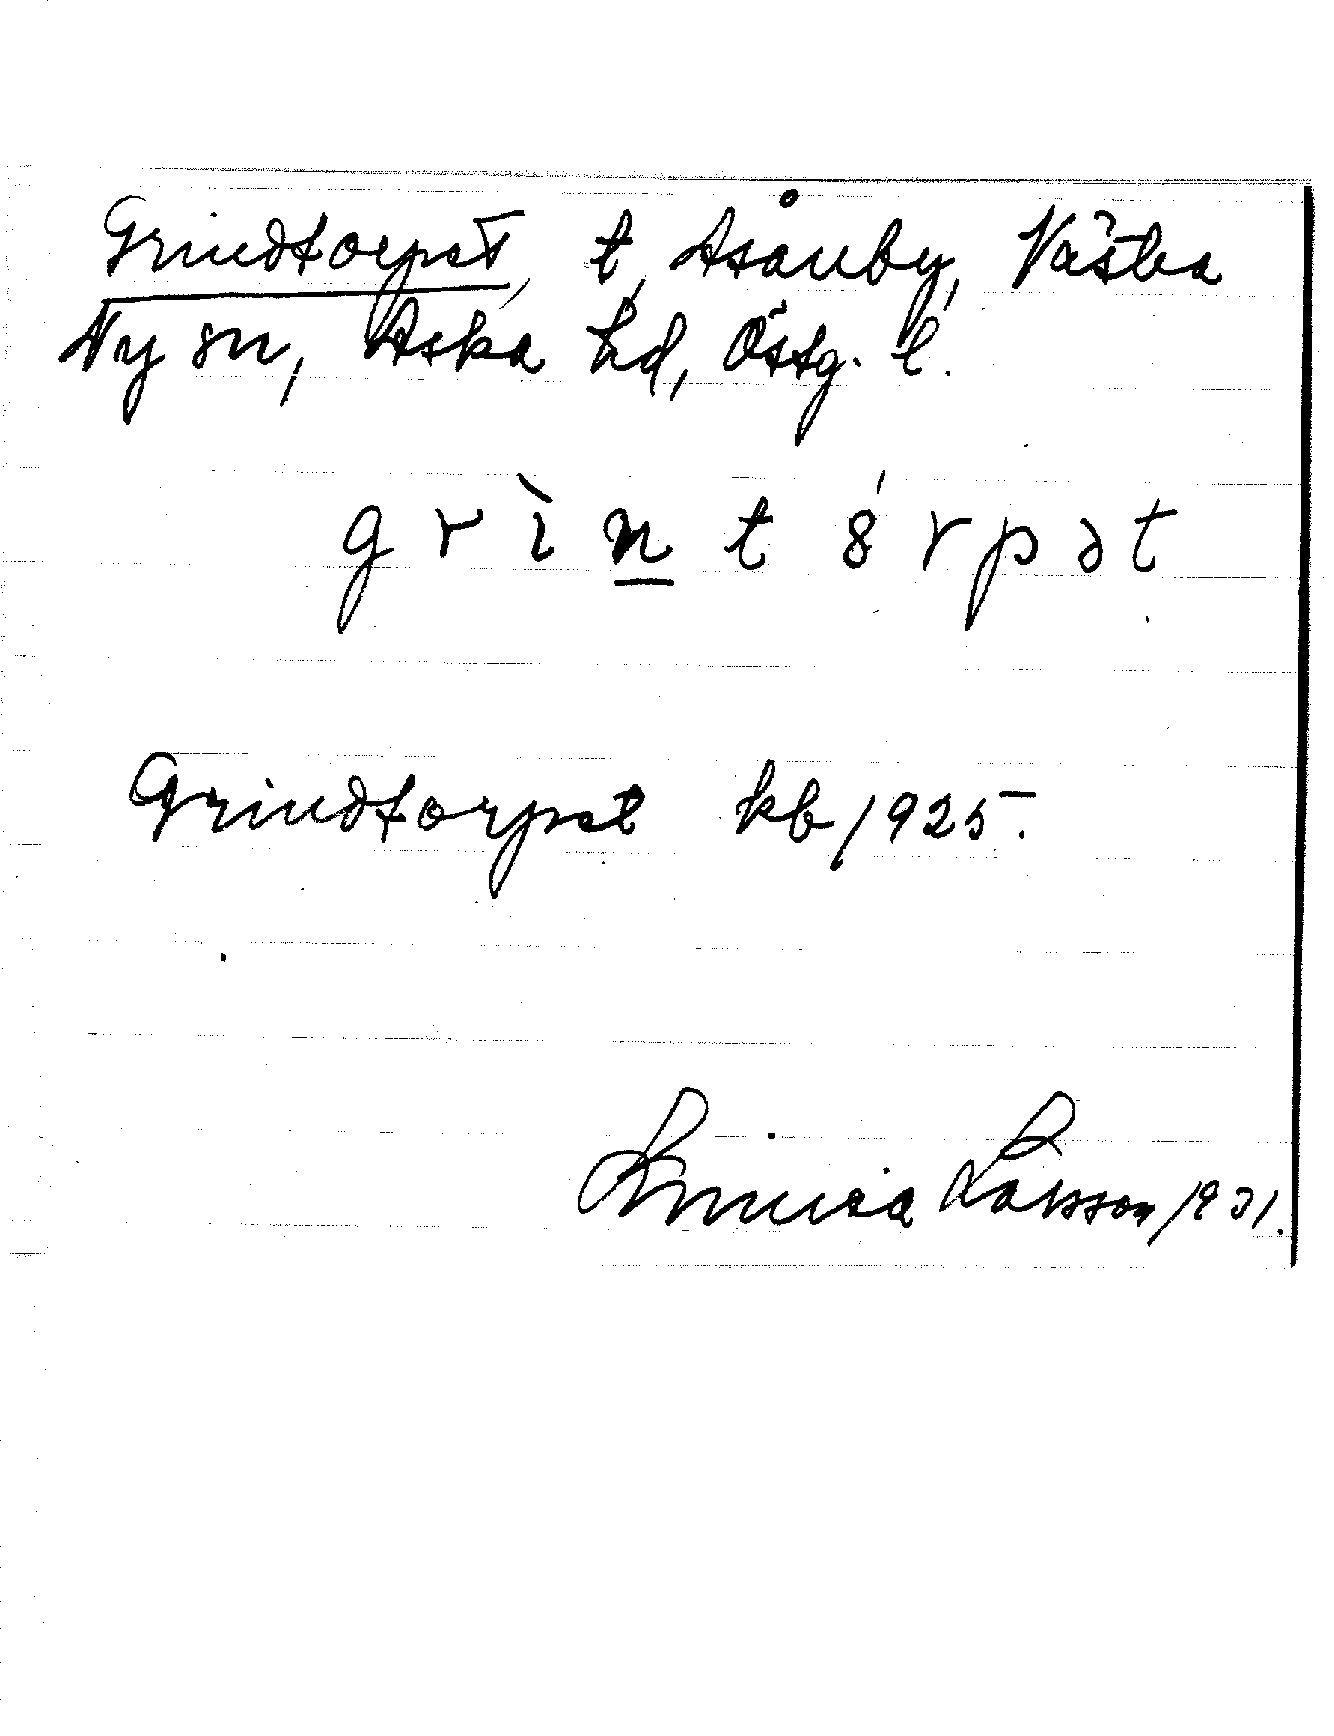 Grindtorpet, t, Åsånby, Västra
Ny sn, Aska hd, Östg. l.
grìntórpət
Grindtorpet kb 1925.
Linnea Larsson 1931.